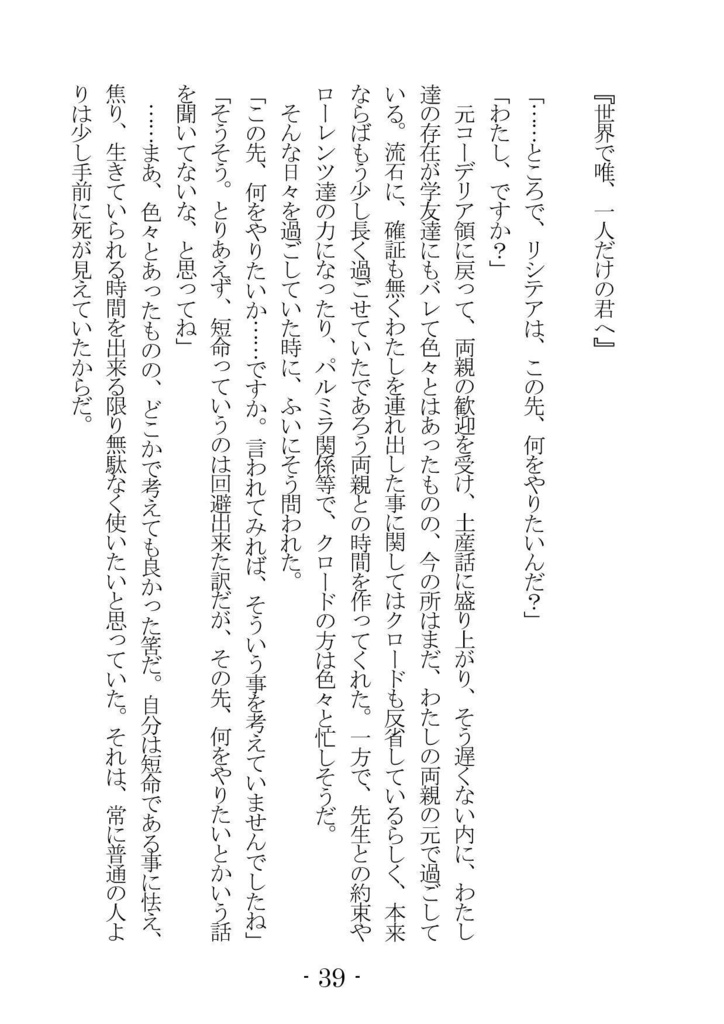 『世界で唯、一人だけの君へ』
「……ところで、リシテアは、この先、何をやりたいんだ？」
「わたし、ですか？」
　元コーデリア領に戻って、両親の歓迎を受け、土産話に盛り上がり、そう遅くない内に、わたし
達の存在が学友達にもバレて色々とはあったものの、今の所はまだ、わたしの両親の元で過ごして
いる。流石に、確証も無くわたしを連れ出した事に関してはクロードも反省しているらしく、本来
ならばもう少し長く過ごせていたであろう両親との時間を作ってくれた。一方で、先生との約束や
ローレンツ達の力になったり、パルミラ関係等で、クロードの方は色々と忙しそうだ。
　そんな日々を過ごしていた時に、ふいにそう問われた。
「この先、何をやりたいか……ですか。言われてみれば、そういう事を考えていませんでしたね」
「そうそう。とりあえず、短命っていうのは回避出来た訳だが、その先、何をやりたいとかいう話
を聞いてないな、と思ってね」
　……まあ、色々とあったものの、どこかで考えても良かった筈だ。自分は短命である事に怯え、
焦り、生きていられる時間を出来る限り無駄なく使いたいと思っていた。それは、常に普通の人よ
りは少し手前に死が見えていたからだ。
- 39 -